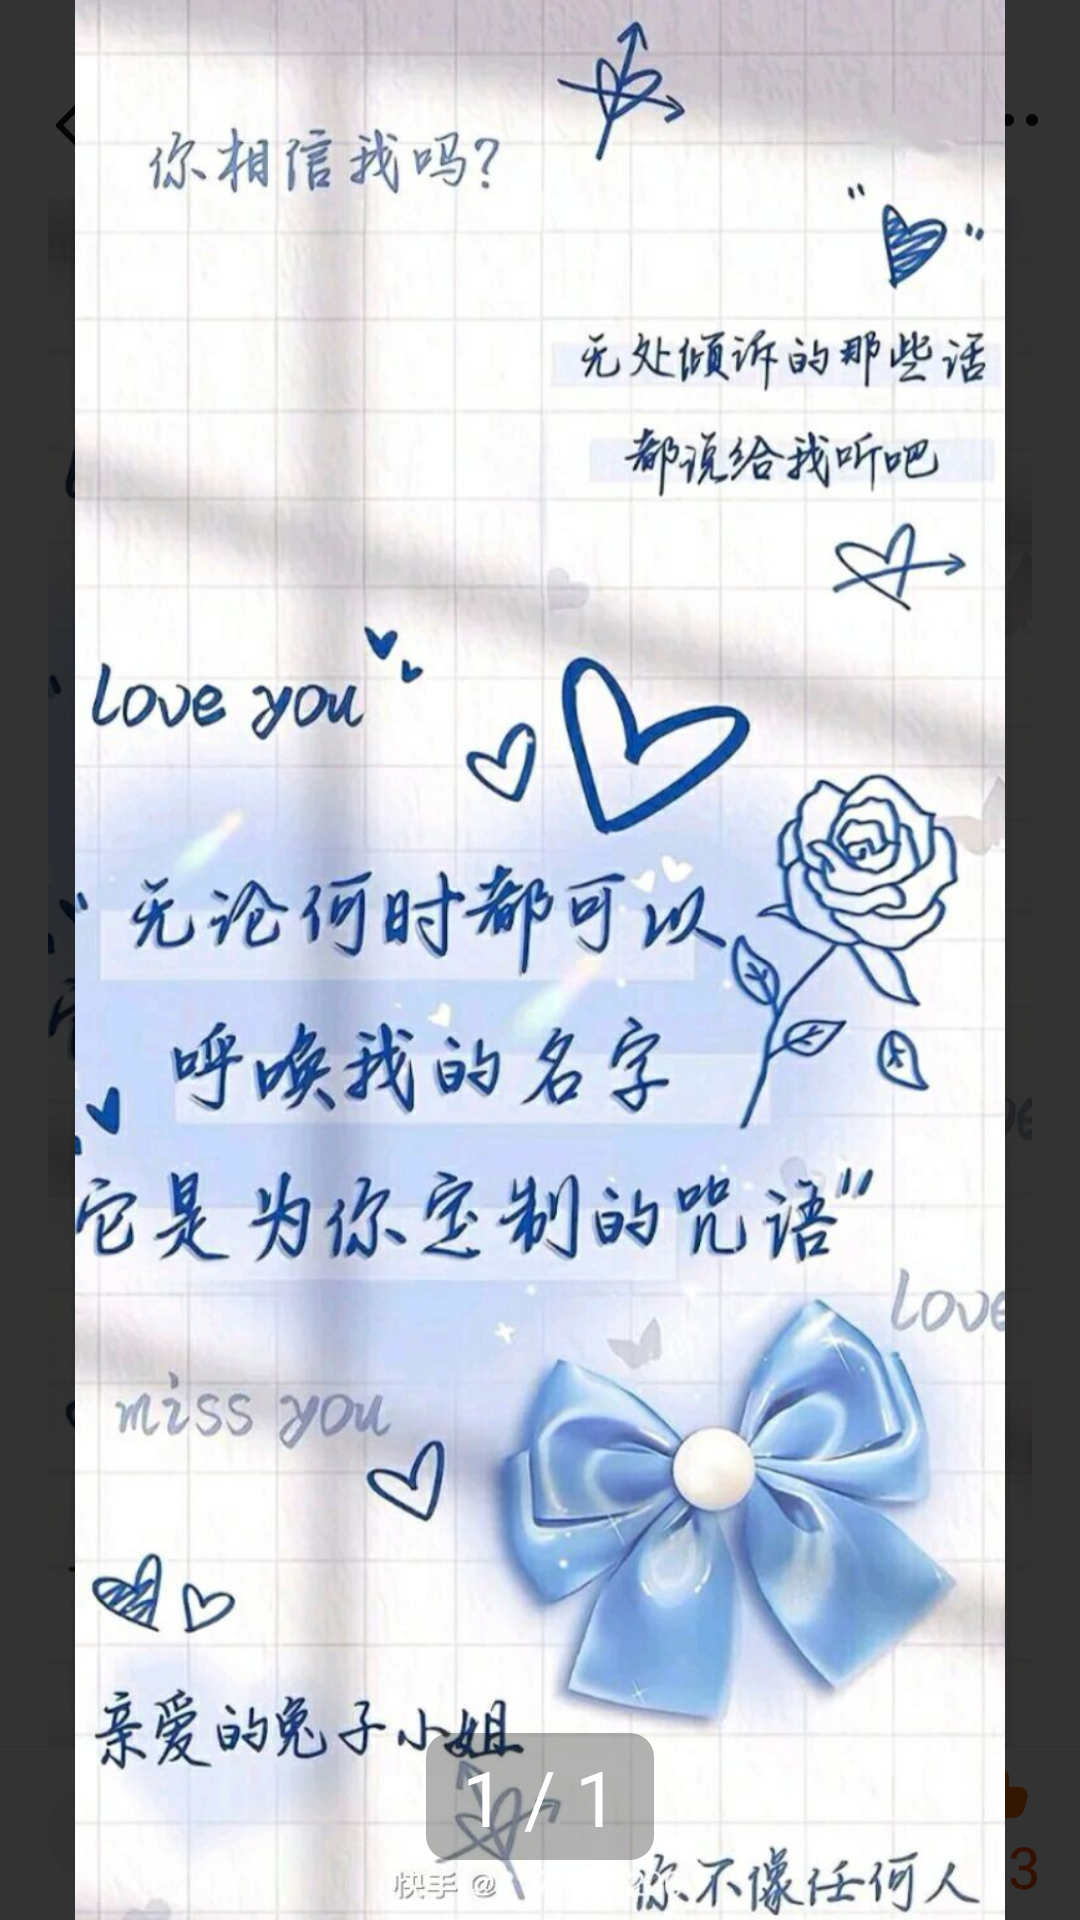 你相信我吗?
无处倾诉的那些话
都说给我听吧
love you
"无论何时都可以
呼唤我的名字
它是为你定制的咒语"
love
miss you
亲爱的兔子小姐
1/1
你不像任何人
快手 @
3